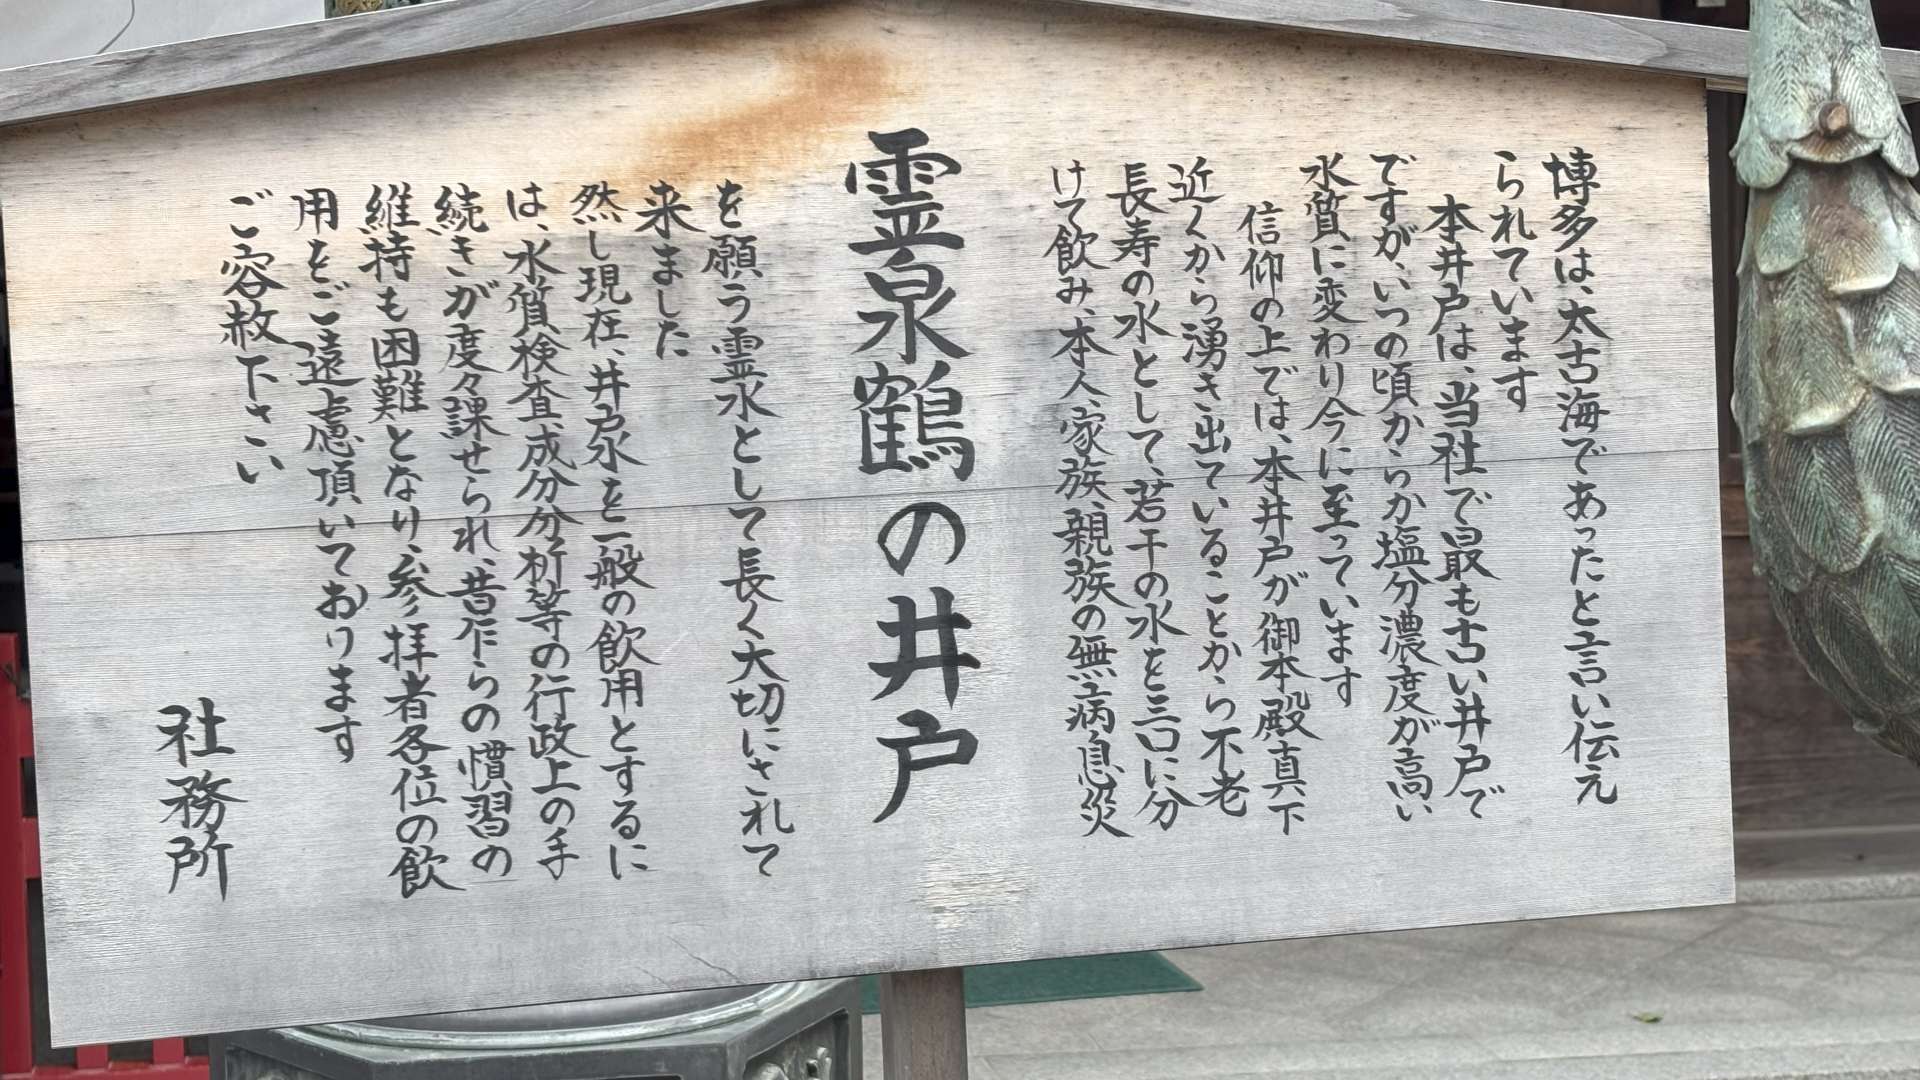 博多は、太古海であったと言い伝え
られています
本井戸は、当社で最も古い井戸で
ですが、いつの頃からか塩分濃度が高い
水質に変わり今に至っています
信仰の上では、本井戸が御本殿真下
近くから湧き出ていることから不老
長寿の水として、若干の水を三口に分
けて飲み、本人、家族、親族の無病息災
霊泉鶴の井戸
を願う霊水として長く大切にされて
来ました
然し現在、井戸水を一般の飲用とするに
は、水質検査、成分分析等の行政上の手
続きが度々課せられ、昔乍らの慣習の
維持も困難となり、参拝者各位の飲
用をご遠慮頂いております
ご容赦下さい
社務所